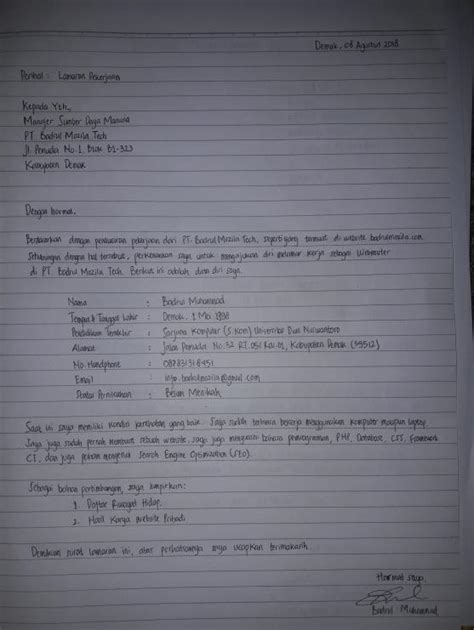 Demak, 08 Agustus 2018
Perihal : Lamaran Pekerjaan
Kepada Yth,
Manajer Sumber Daya Manusia
PT. Badrul Mozila Tech
Jl. Pemuda No.1 Blok B1-323
Kabupaten Demak
Dengan hormat,
Berdasarkan dengan penawaran pekerjaan dari PT. Badrul Mozila Tech, seperti yang termuat di website badrulmozila.com.
Sehubungan dengan hal tersebut, perkenankan saya untuk mengajukan diri melamar kerja sebagai Webmaster
di PT. Badrul Mozila Tech. Berikut ini adalah data diri saya.
Nama : Badrul Muhammad
Tempat & Tanggal Lahir : Demak, 1 Mei
Pendidikan Terakhir : Sarjana Komputer (S.Kom) Universitas Dian Nuswantoro
Alamat : Jalan Pemuda No.32 RT.05/ Rw.01, Kabupaten Demak (59512)
No. Handphone : 087831318451
Email : info.badrulmozila@gmail.com
Status Pernikahan : Belum Menikah
Saat ini saya memiliki kondisi kesehatan yang baik. Saya sudah terbiasa bekerja menggunakan komputer maupun laptop.
Saya juga sudah pernah membuat sebuah website, saya juga menguasai bahasa pemrograman, PHP, Database, CSS, Framework
CI, dan juga paham mengenai Search Engine Optimization (SEO).
Sebagai bahan pertimbangan, saya lampirkan:
1. Daftar Riwayat Hidup.
2. Hasil Karya Website Pribadi
Demikian surat lamaran ini, atas perhatiannya saya ucapkan terimakasih.
Hormat saya,
Badrul Muhammad